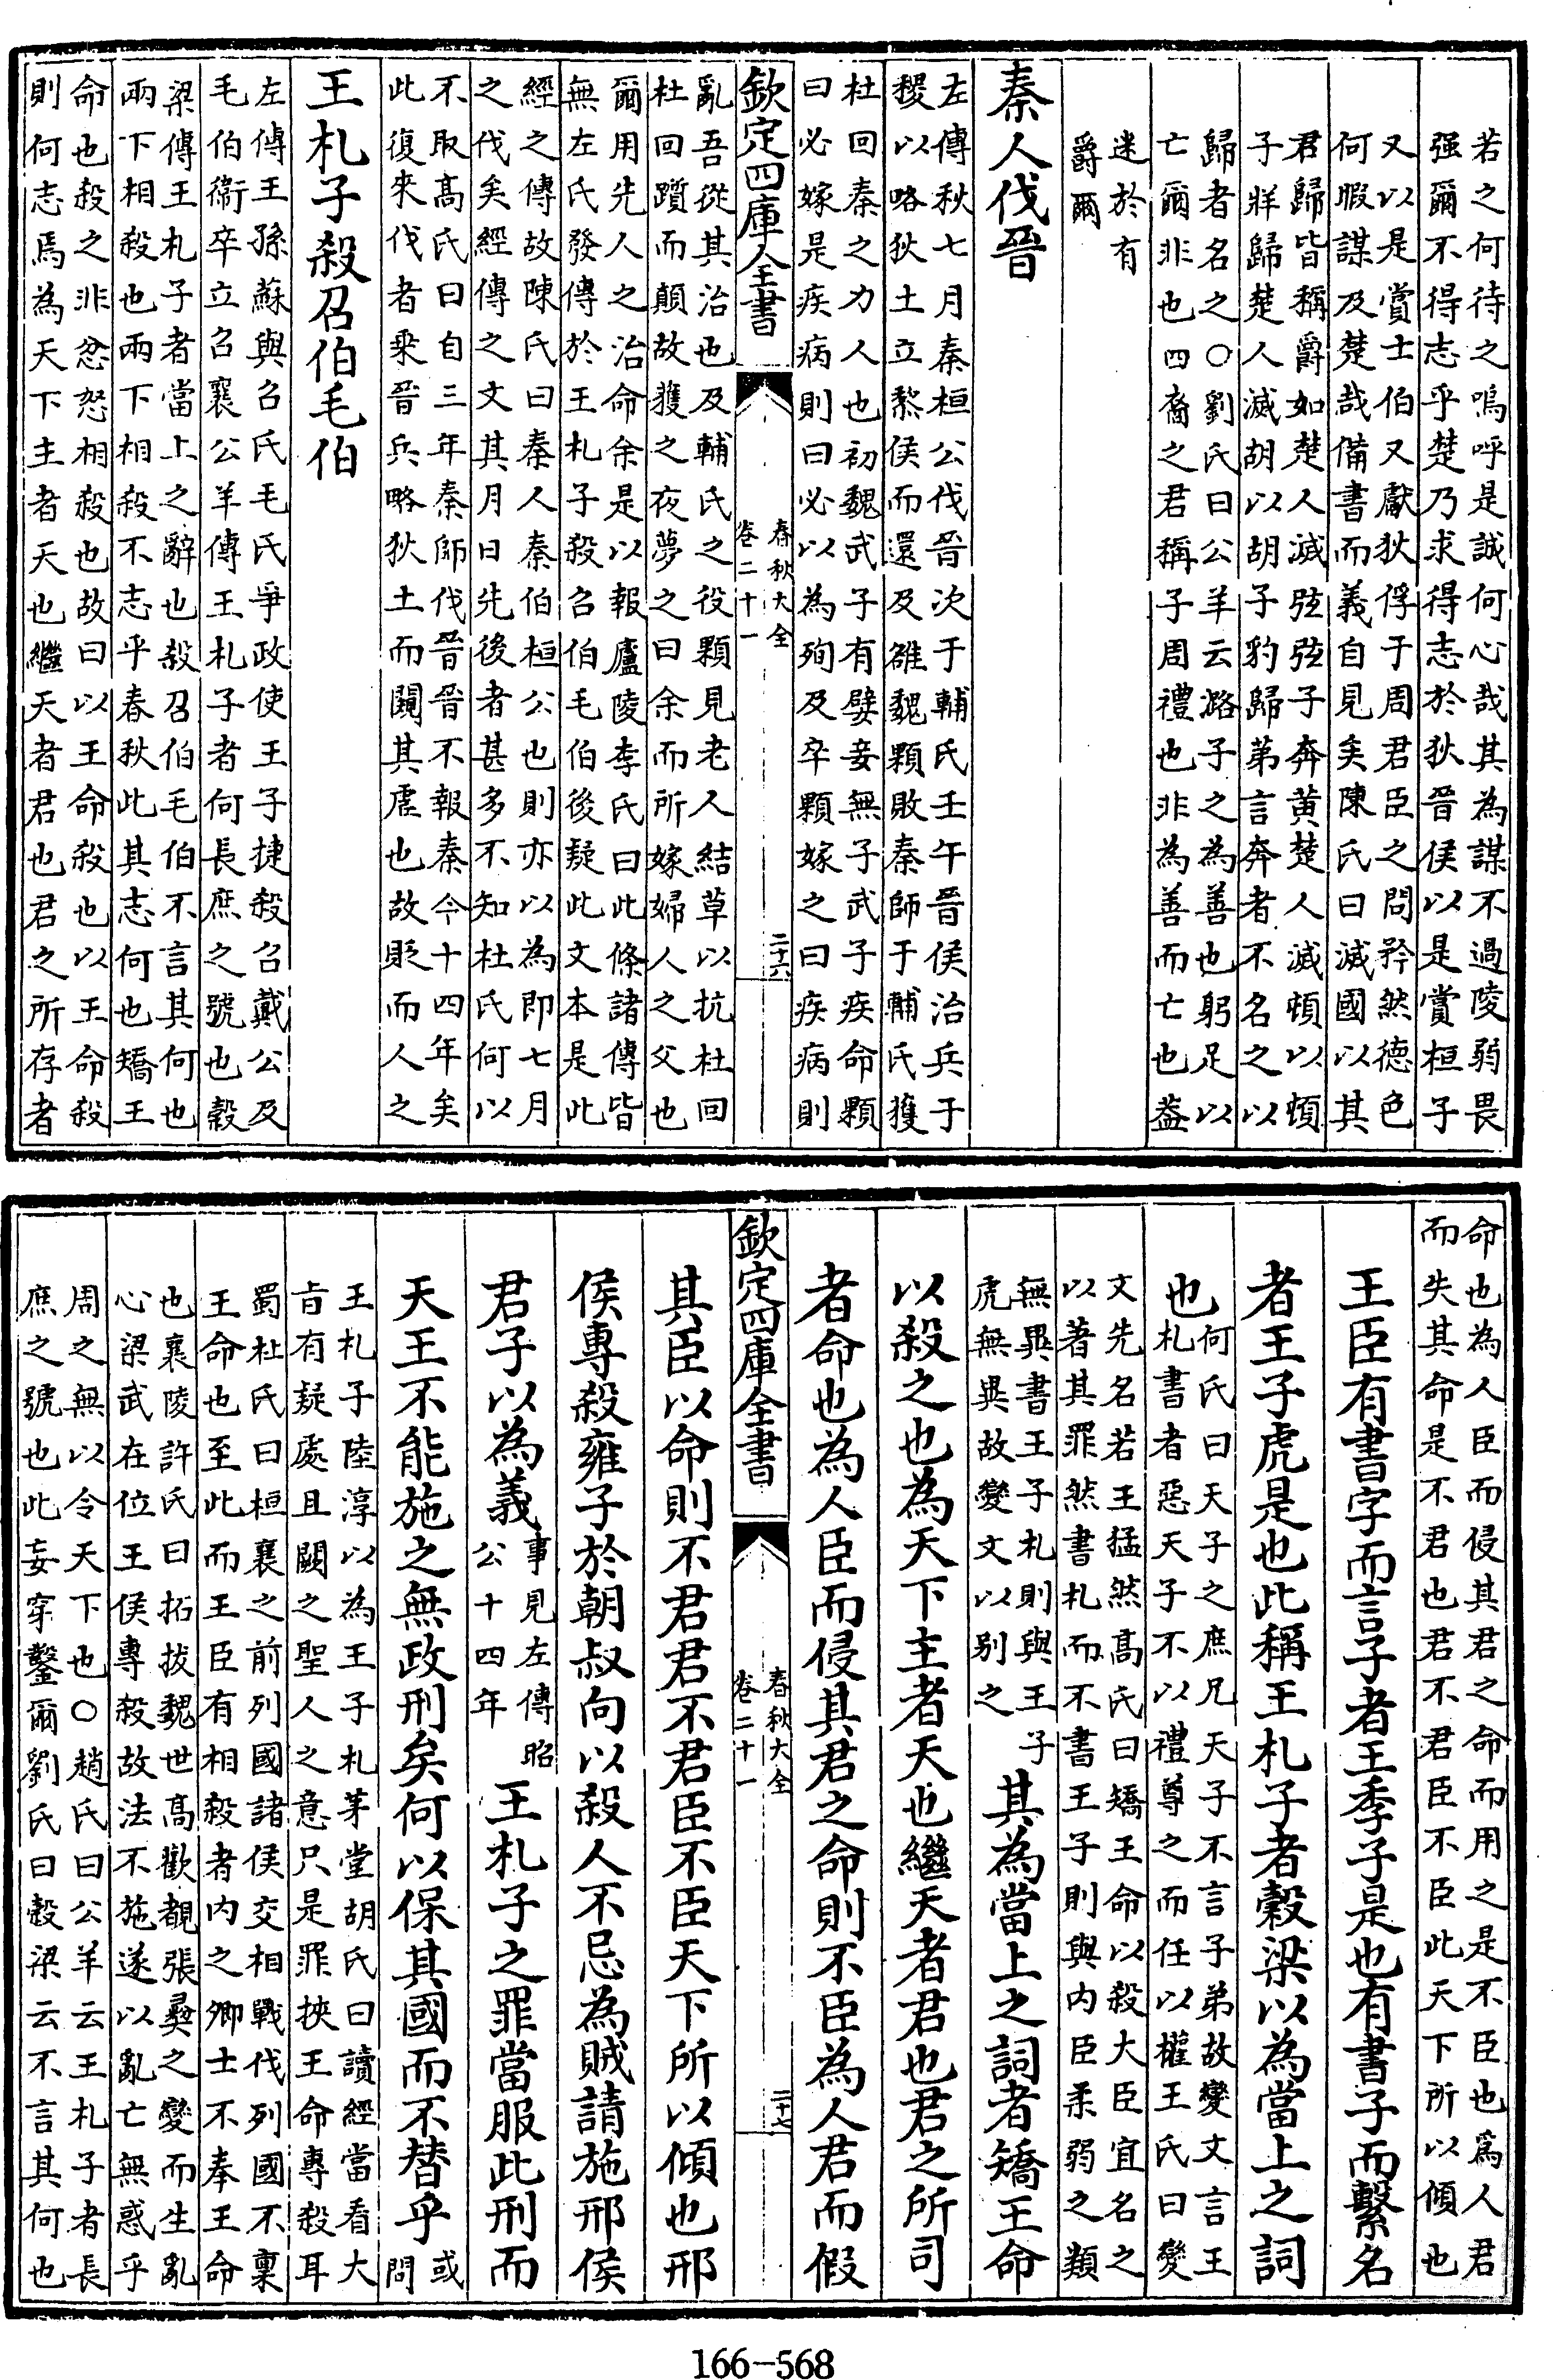 若之何待之嗚呼是誠何心哉其為謀不過陵弱畏
强爾不得志乎楚乃求得志於狄晉侯以是賞桓子
又以是賞士伯又獻狄俘于周君臣之問矜然德色
何暇謀及楚哉備書而義自見矣陳氏曰滅國以其
君歸皆稱爵如楚人滅弦弦子奔黄楚人滅頓以頓
子牂歸楚人滅胡以胡子豹歸弟言奔者不名之以
歸者名之○劉氏曰公羊云潞子之為善也躬足以
亡爾非也四裔之君稱子周禮也非為善而亡也葢
迷於有
爵爾
秦人伐晉
左傳秋七月秦桓公伐晉次于輔氏壬午晉侯治兵于
稷以略狄土立黎侯而還及雒魏顆敗秦師于輔氏獲
杜回秦之力人也初魏武子有嬖妾無子武子疾命顆
曰必嫁是疾病則曰必以為殉及卒顆嫁之曰疾病則
欽定四庫全書
春秋大全
卷二十一
二十六
亂吾從其治也及輔氏之役顆見老人結草以抗杜回
杜回躓而顛故獲之夜夢之曰余而所嫁婦人之父也
爾用先人之治命余是以報廬陵李氏曰此條諸傳皆
無左氏發傳於王札子殺召伯毛伯後疑此文本是此
經之傳故陳氏曰秦人秦伯桓公也則亦以為即七月
之伐矣經傳之文其月日先後者甚多不知杜氏何以
不取髙氏曰自三年秦師伐晉晉不報秦今十四年矣
此復來伐者乘晉兵略狄土而闚其虛也故貶而人之
王札子殺召伯毛伯
左傳王孫蘇與召氏毛氏爭政使王子捷殺召戴公及
毛伯衞卒立召襄公羊傳王札子者何長庶之號也穀
梁傳王札子者當上之辭也殺召伯毛伯不言其何也
兩下相殺也兩下相殺不志乎春秋此其志何也矯王
命也殺之非忿怒相殺也故曰以王命殺也以王命殺
則何志焉為天下主者天也繼天者君也君之所存者
命也為人臣而侵其君之命而用之是不臣也為人君
而失其命是不君也君不君臣不臣此天下所以傾也
王臣有書字而言子者王季子是也有書子而繫名
者王子虎是也此稱王札子者穀梁以為當上之詞
也何氏曰天子之庶兄天子不言子弟故變文言王
札書者惡天子不以禮尊之而任以權王氏曰變
文先名若王猛然髙氏曰矯王命以殺大臣宜名之
以著其罪然書札而不書王子則與内臣柔弱之類
無異書王子札則與王子
虎無異故變文以别之其為當上之詞者矯王命
以殺之也為天下主者天也繼天者君也君之所司
者命也為人臣而侵其君之命則不臣為人君而假
欽定四庫全書
春秋大全
卷二十一
二十七
其臣以命則不君君不君臣不臣天下所以傾也邢
侯專殺雍子於朝叔向以殺人不忌為賊請施邢侯
君子以為義事見左傳昭
公十四年王札子之罪當服此刑而
天王不能施之無政刑矣何以保其國而不替乎或
問
王札子陸淳以為王子札茅堂胡氏曰讀經當看大
㫖有疑處且闕之聖人之意只是罪挾王命專殺耳
蜀杜氏曰桓襄之前列國諸侯交相戰伐列國不稟
王命也至此而王臣有相殺者内之卿士不奉王命
也襄陵許氏曰拓拔魏世髙歡覩張彞之變而生亂
心梁武在位王侯專殺故法不施遂以亂亡無惑乎
周之無以令天下也○趙氏曰公羊云王札子者長
庶之號也此妄穿鑿爾劉氏曰穀梁云不言其何也
166-568